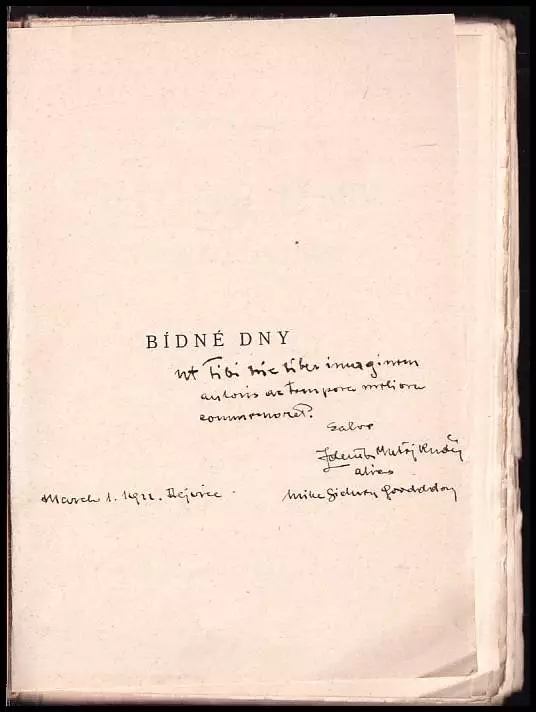 BÍDNÉ DNY
ut Tibi hic liber imaginem
autoris ac tempora meliora
commemoret.
Salve
Zdeněk Matěj Kuděj
alias
Mike
March 1. 1922.